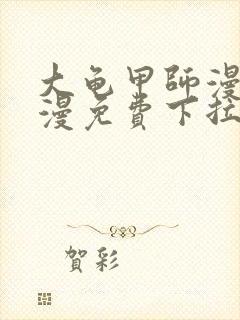 大龟甲師漫
漫免費下拉
賀彩